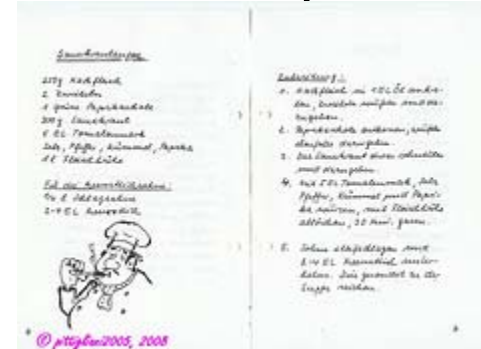 Sauerkrautsuppe
250g Hackfleisch
2 Zwiebeln
1 grüne Paprikaschote
300g Sauerkraut
5 EL Tomatenmark
Salz, Pfeffer, Kümmel, Paprika
1 l Fleischbrühe
Für die Meerrettichsahne:
1/4 l Schlagsahne
2-4 EL Meerrettich
Zubereitung:
1. Hackfleisch in 4 EL Öl anbra-
ten, Zwiebeln würfeln und da-
zugeben.
2. Paprikaschote entkernen, würfeln
dazugeben.
3. Das Sauerkraut etwas schneiden
und dazugeben.
4. Mit 5 EL Tomatenmark, Salz
Pfeffer, Kümmel und Papri-
ka würzen, mit Fleischbrühe
ablöschen, 30 Min. garen.
5. Sahne steifschlagen und
2-4 EL Meerrettich unter-
heben. Dies gesondert zu der
Suppe reichen.
2005, 2008